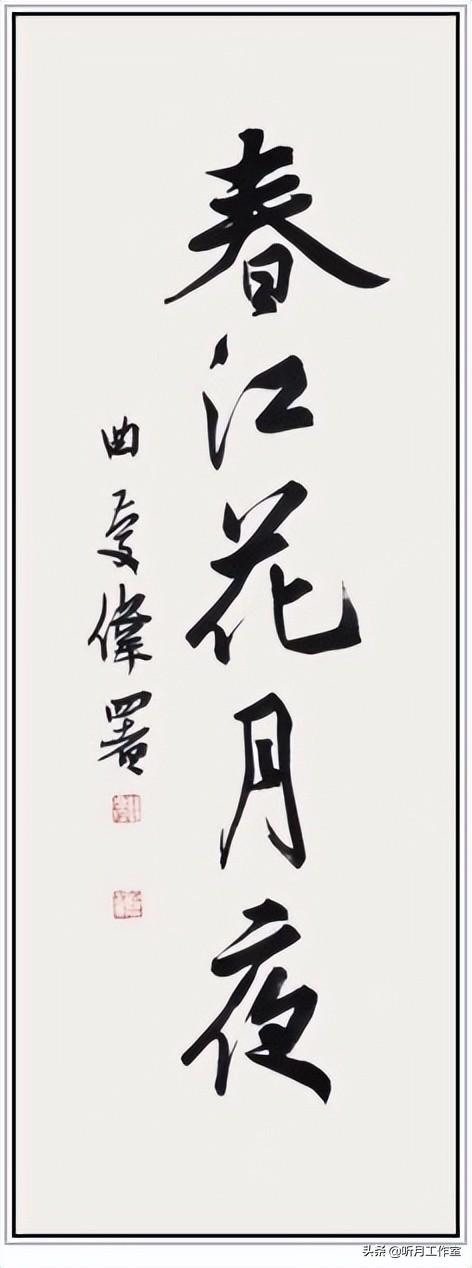 春江花月夜
曲庆伟署
头条 @听月工作室